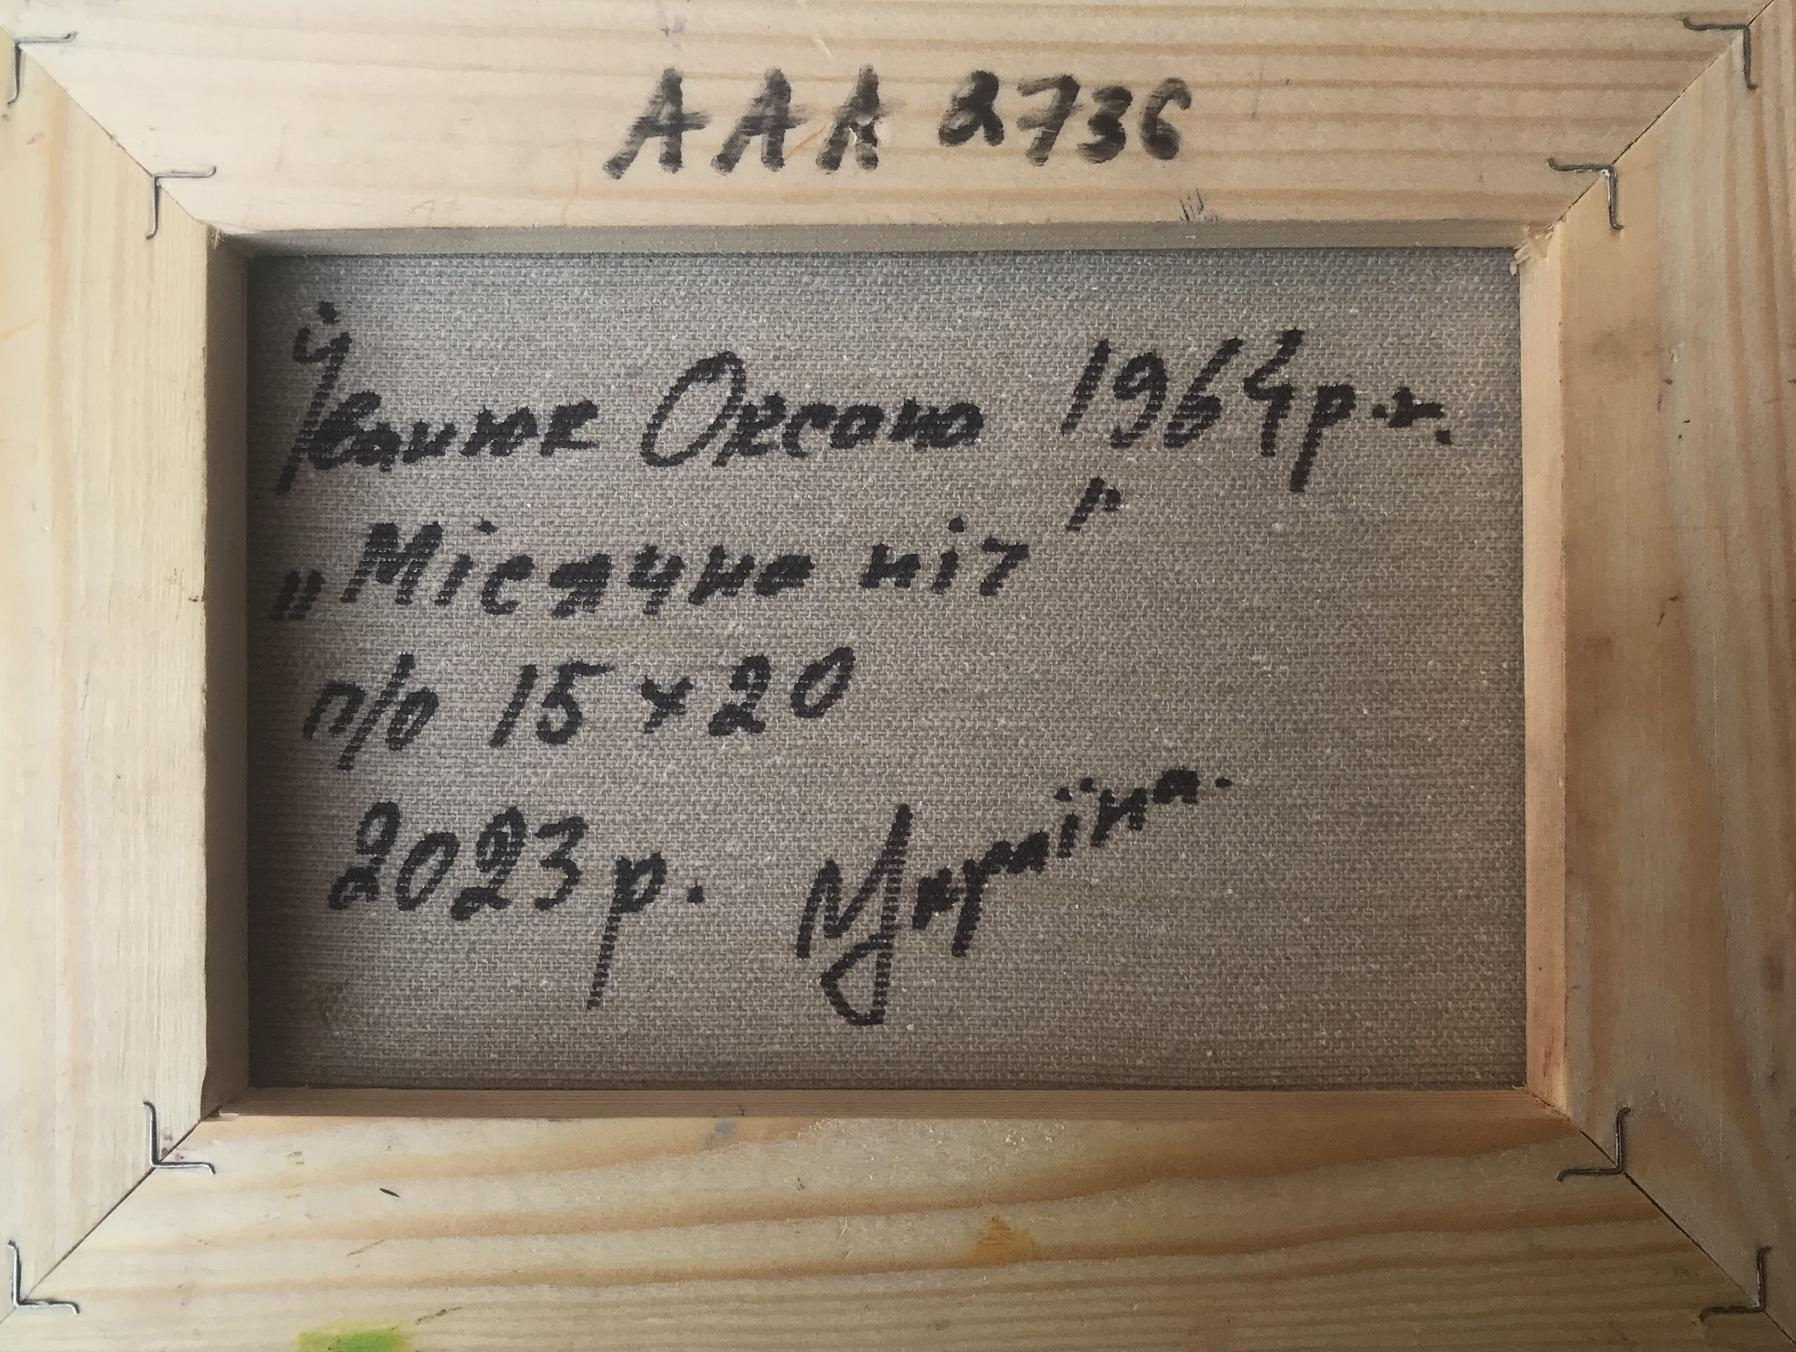 ААА 2736
Іванюк Оксана 1964 р.н.
„Місячна ніч"
п/о 15 x 20
2023 р. Україна.